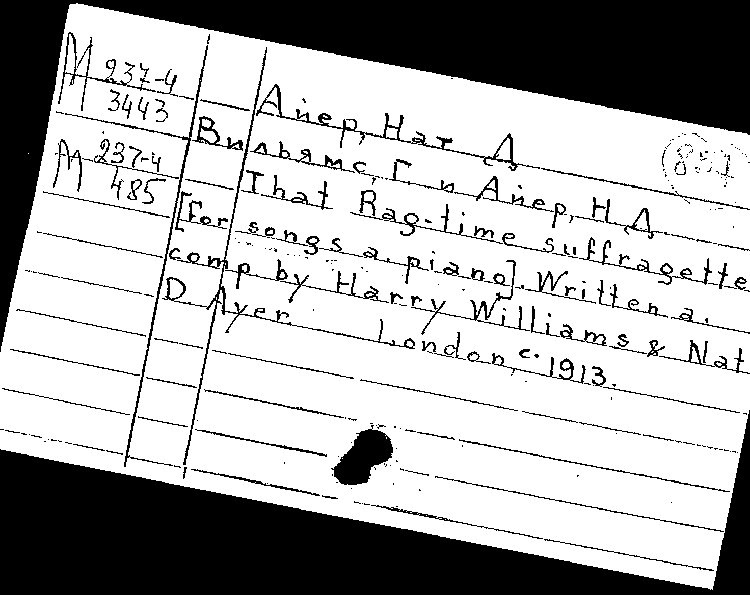 М 237-4
3443
М 237-4
485
857
Айер, Нат Д
Вильямс, Г. и Айер, Н.Д.
That Rag-time suffragette
[for songs a. piano]. Written a.
comp by Harry Williams & Nat
D. Ayer. London, c. 1913.